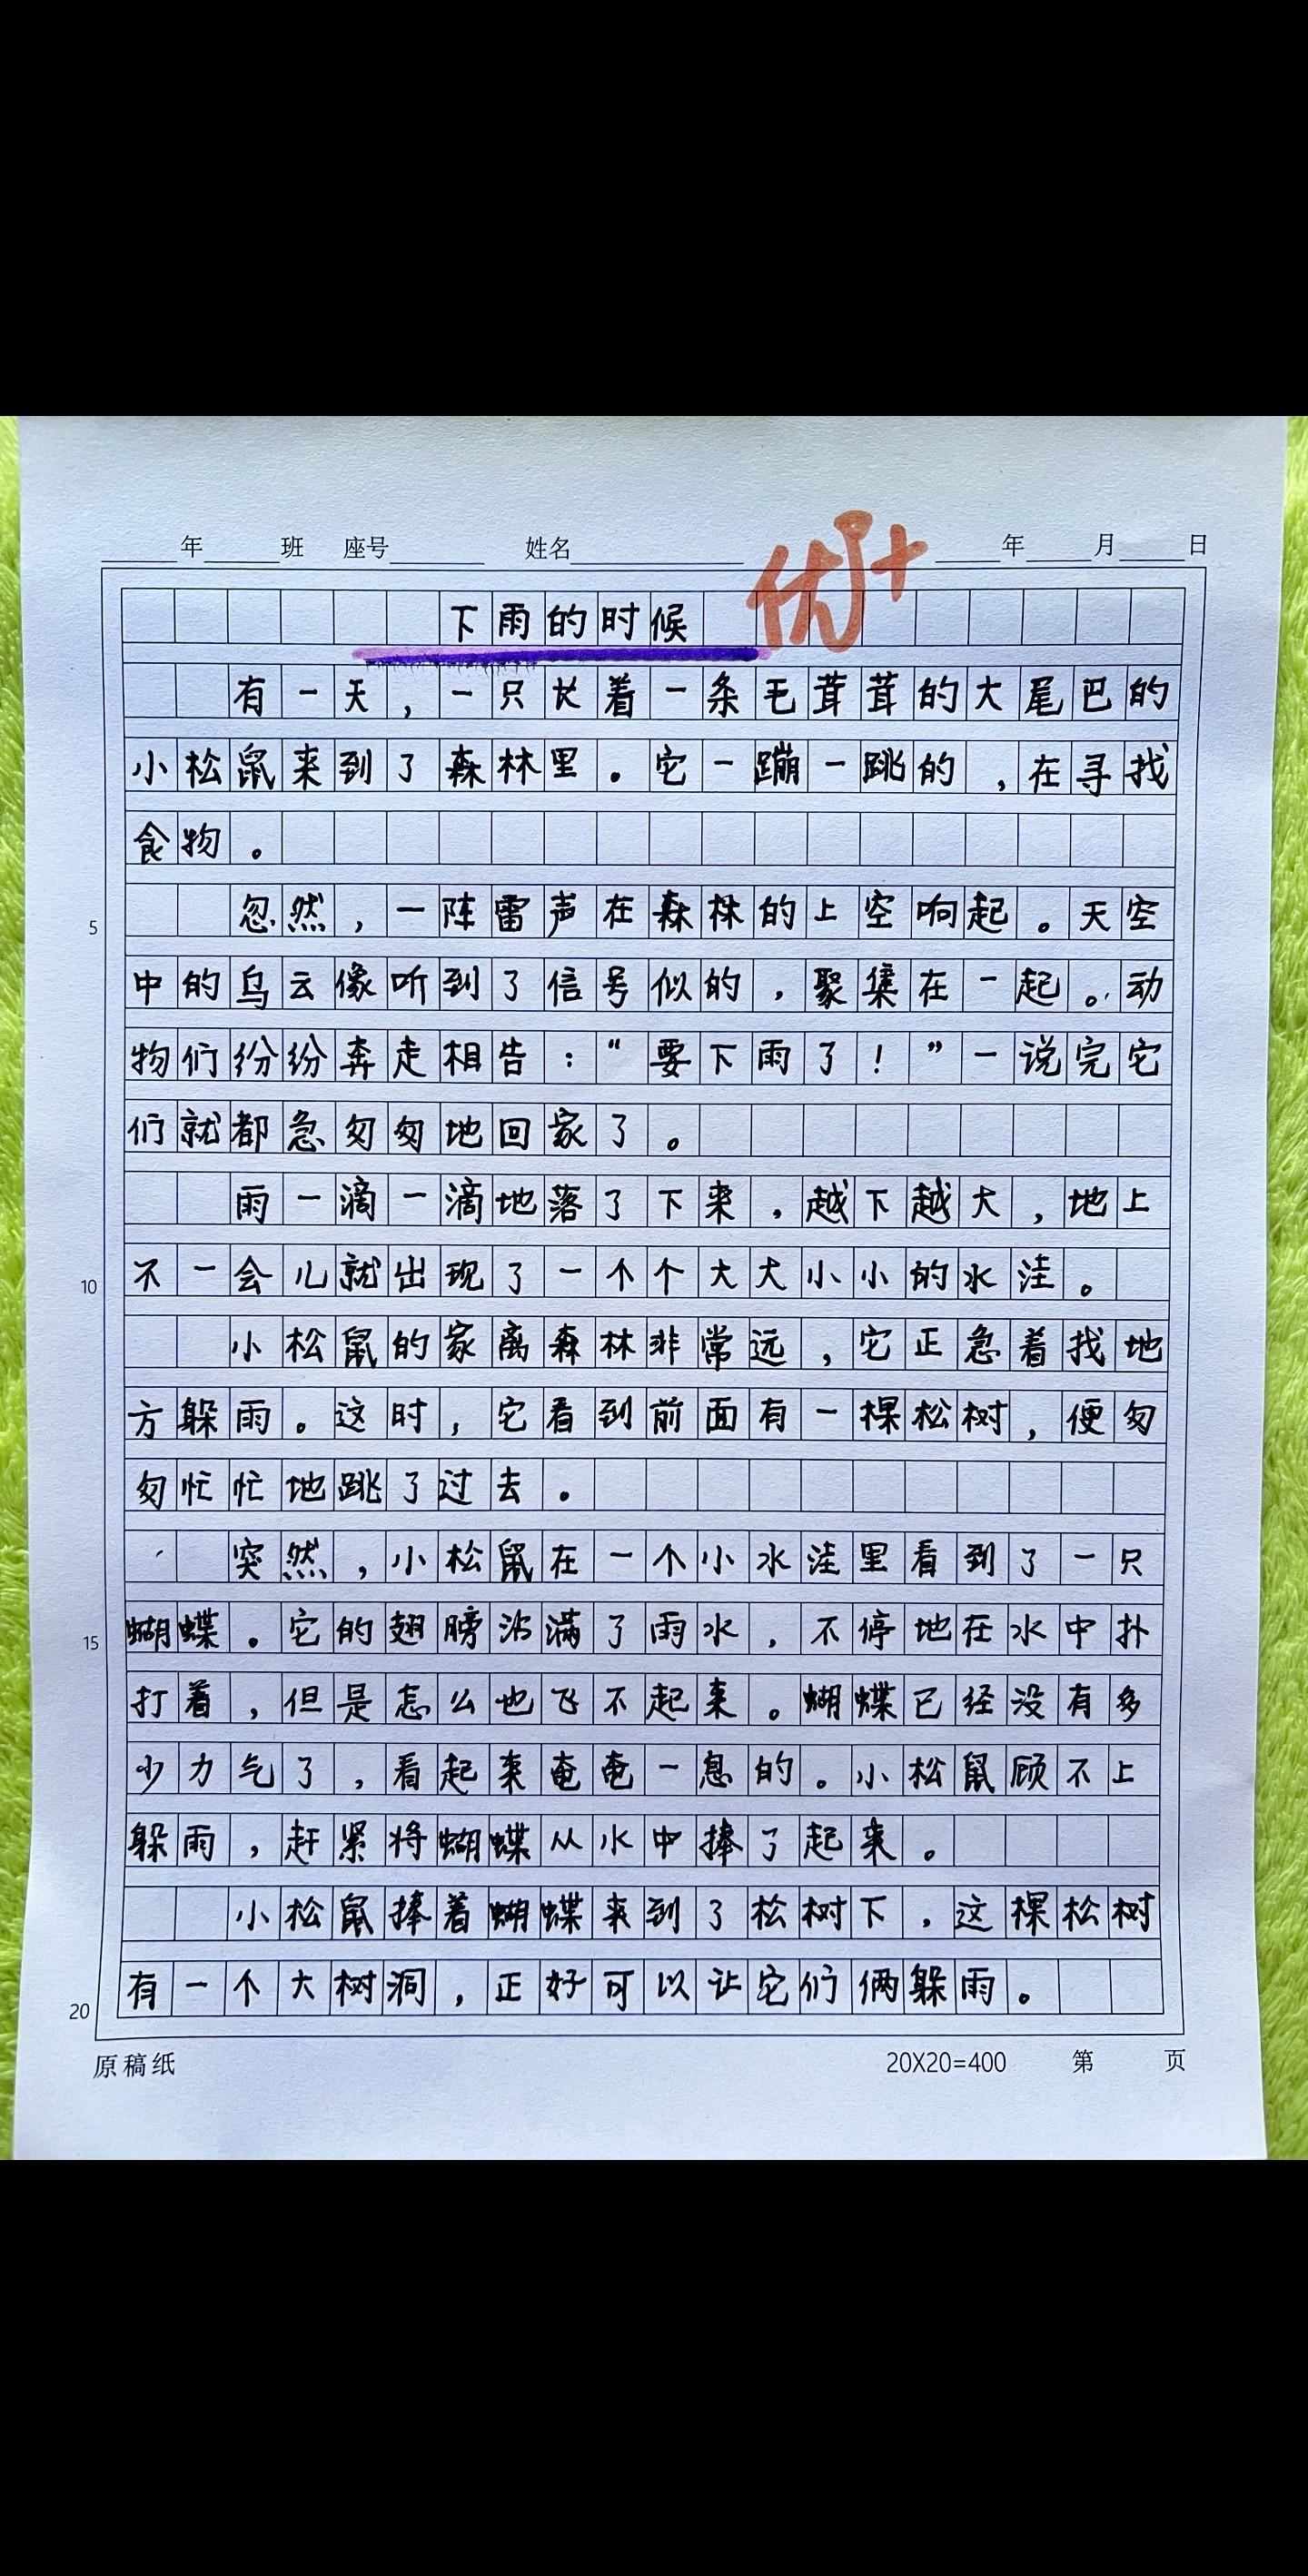 ____年____班 座号____ 姓名____ 优+ ____年____月____日
下雨的时候
有一天，一只长着一条毛茸茸的大尾巴的
小松鼠来到了森林里。它一蹦一跳的，在寻找
食物。
忽然，一阵雷声在森林的上空响起。天空
中的乌云像听到了信号似的，聚集在一起。动
物们纷纷奔走相告：“要下雨了！”一说完它
们就都急匆匆地回家了。
雨一滴一滴地落了下来，越下越大，地上
不一会儿就出现了一个个大大小小的水洼。
小松鼠的家离森林非常远，它正急着找地
方躲雨。这时，它看到前面有一棵松树，便匆
匆忙忙地跳了过去。
突然，小松鼠在一个小水洼里看到了一只
蝴蝶。它的翅膀沾满了雨水，不停地在水中扑
打着，但是怎么也飞不起来。蝴蝶已经没有多
少力气了，看起来奄奄一息的。小松鼠顾不上
躲雨，赶紧将蝴蝶从水中捧了起来。
小松鼠捧着蝴蝶来到了松树下，这棵松树
有一个大树洞，正好可以让它们俩躲雨。
5
10
15
20
原稿纸 20X20=400 第 页